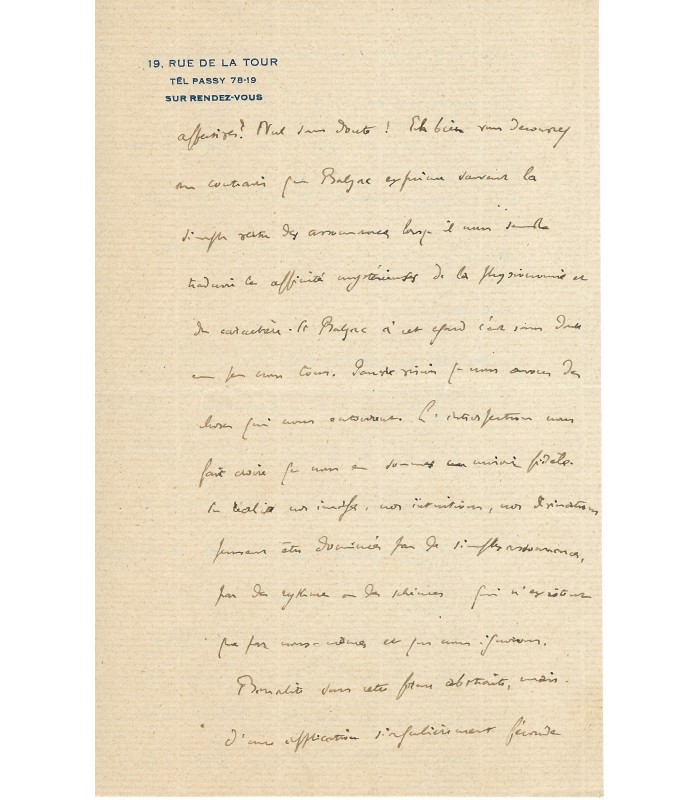 19, RUE DE LA TOUR
TÉL PASSY 78-19
SUR RENDEZ-VOUS
Nul sans doute ! Eh bien vous découvrez
au contraire que Balzac exprime souvent la
simple des assonances lorsqu'il nous semble
traduire les affinités mystérieuses de la physionomie et
du caractère. Et Balzac à cet égard c'est sans doute
un peu nous tous. vision que nous avons des
choses qui nous entourent. L'introspection nous
fait croire que nous en sommes un miroir fidèle.
En réalité nos images, nos intuitions, nos divinations
peuvent être dominées par de simples assonances,
par des rythmes ou des schèmes qui n'existent
que par nous-mêmes et que nous ignorons.
Banalité sous cette forme abstraite, mais
d'une application singulièrement féconde